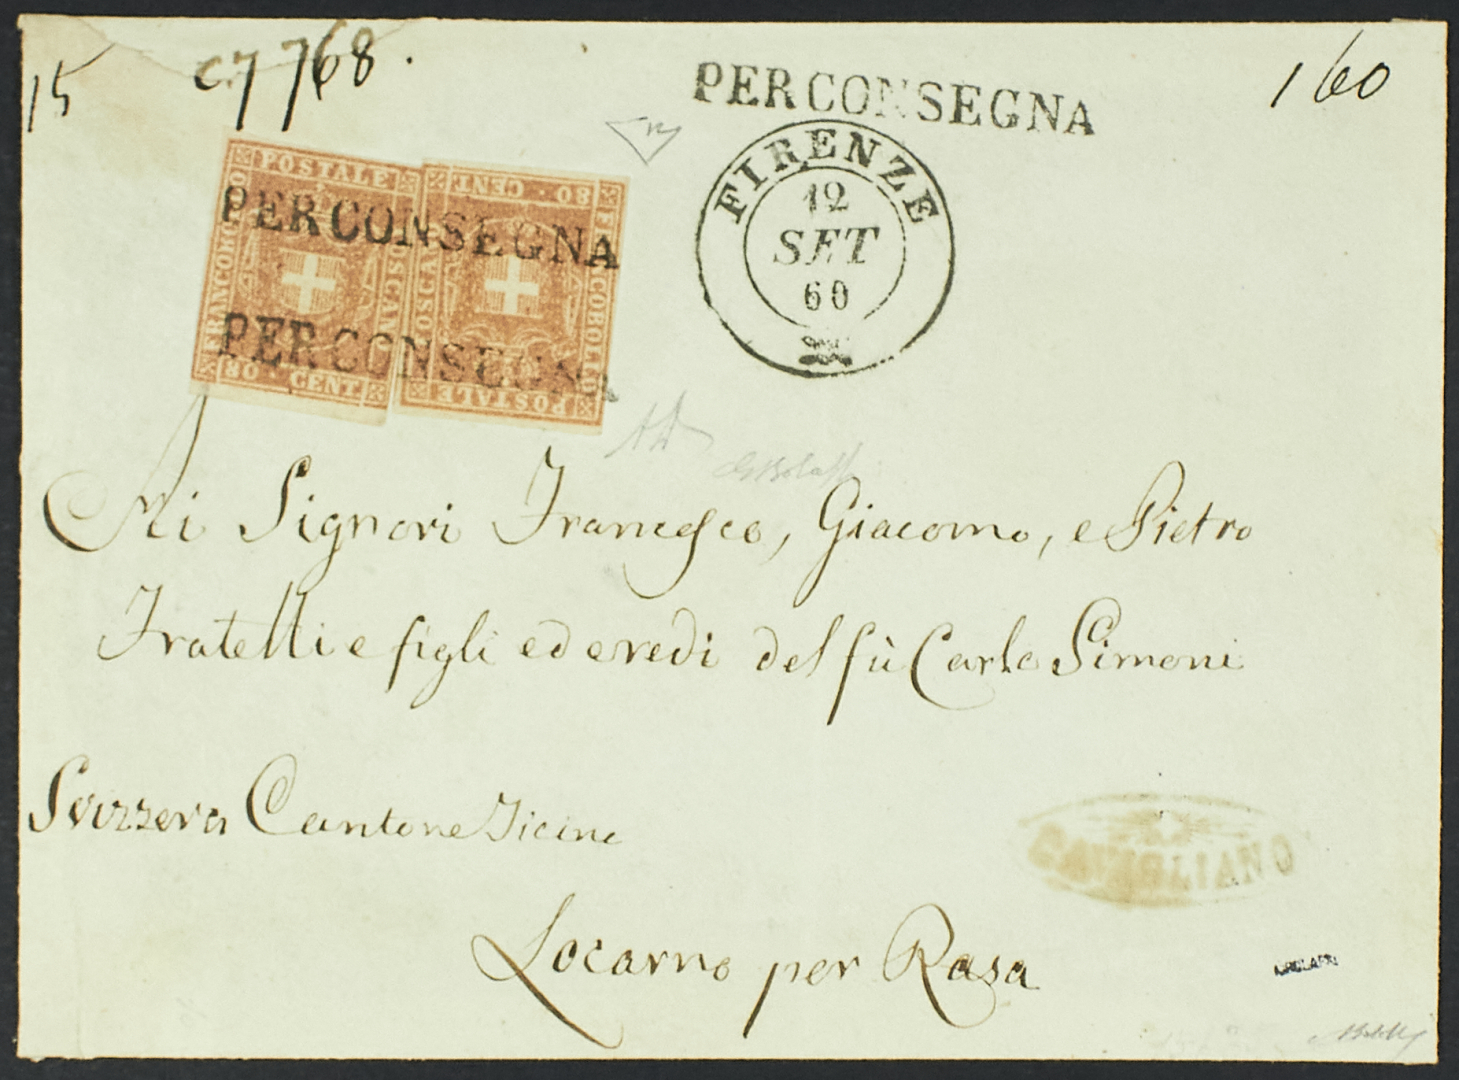 15 C7 768. 160
PER CONSEGNA
FIRENZE
12
SET
60
FRANCOBOLLO POSTALE TOSCANO
80 CENT.
FRANCOBOLLO POSTALE TOSCANO
80 CENT.
PER CONSEGNA
PER CONSEGNA
Ai Signori Francesco, Giacomo, e Pietro
Fratelli e figli ed eredi del fù Carlo Simoni
Svizzera Cantone Ticino
CAVIGLIANO
Locarno per Rasa